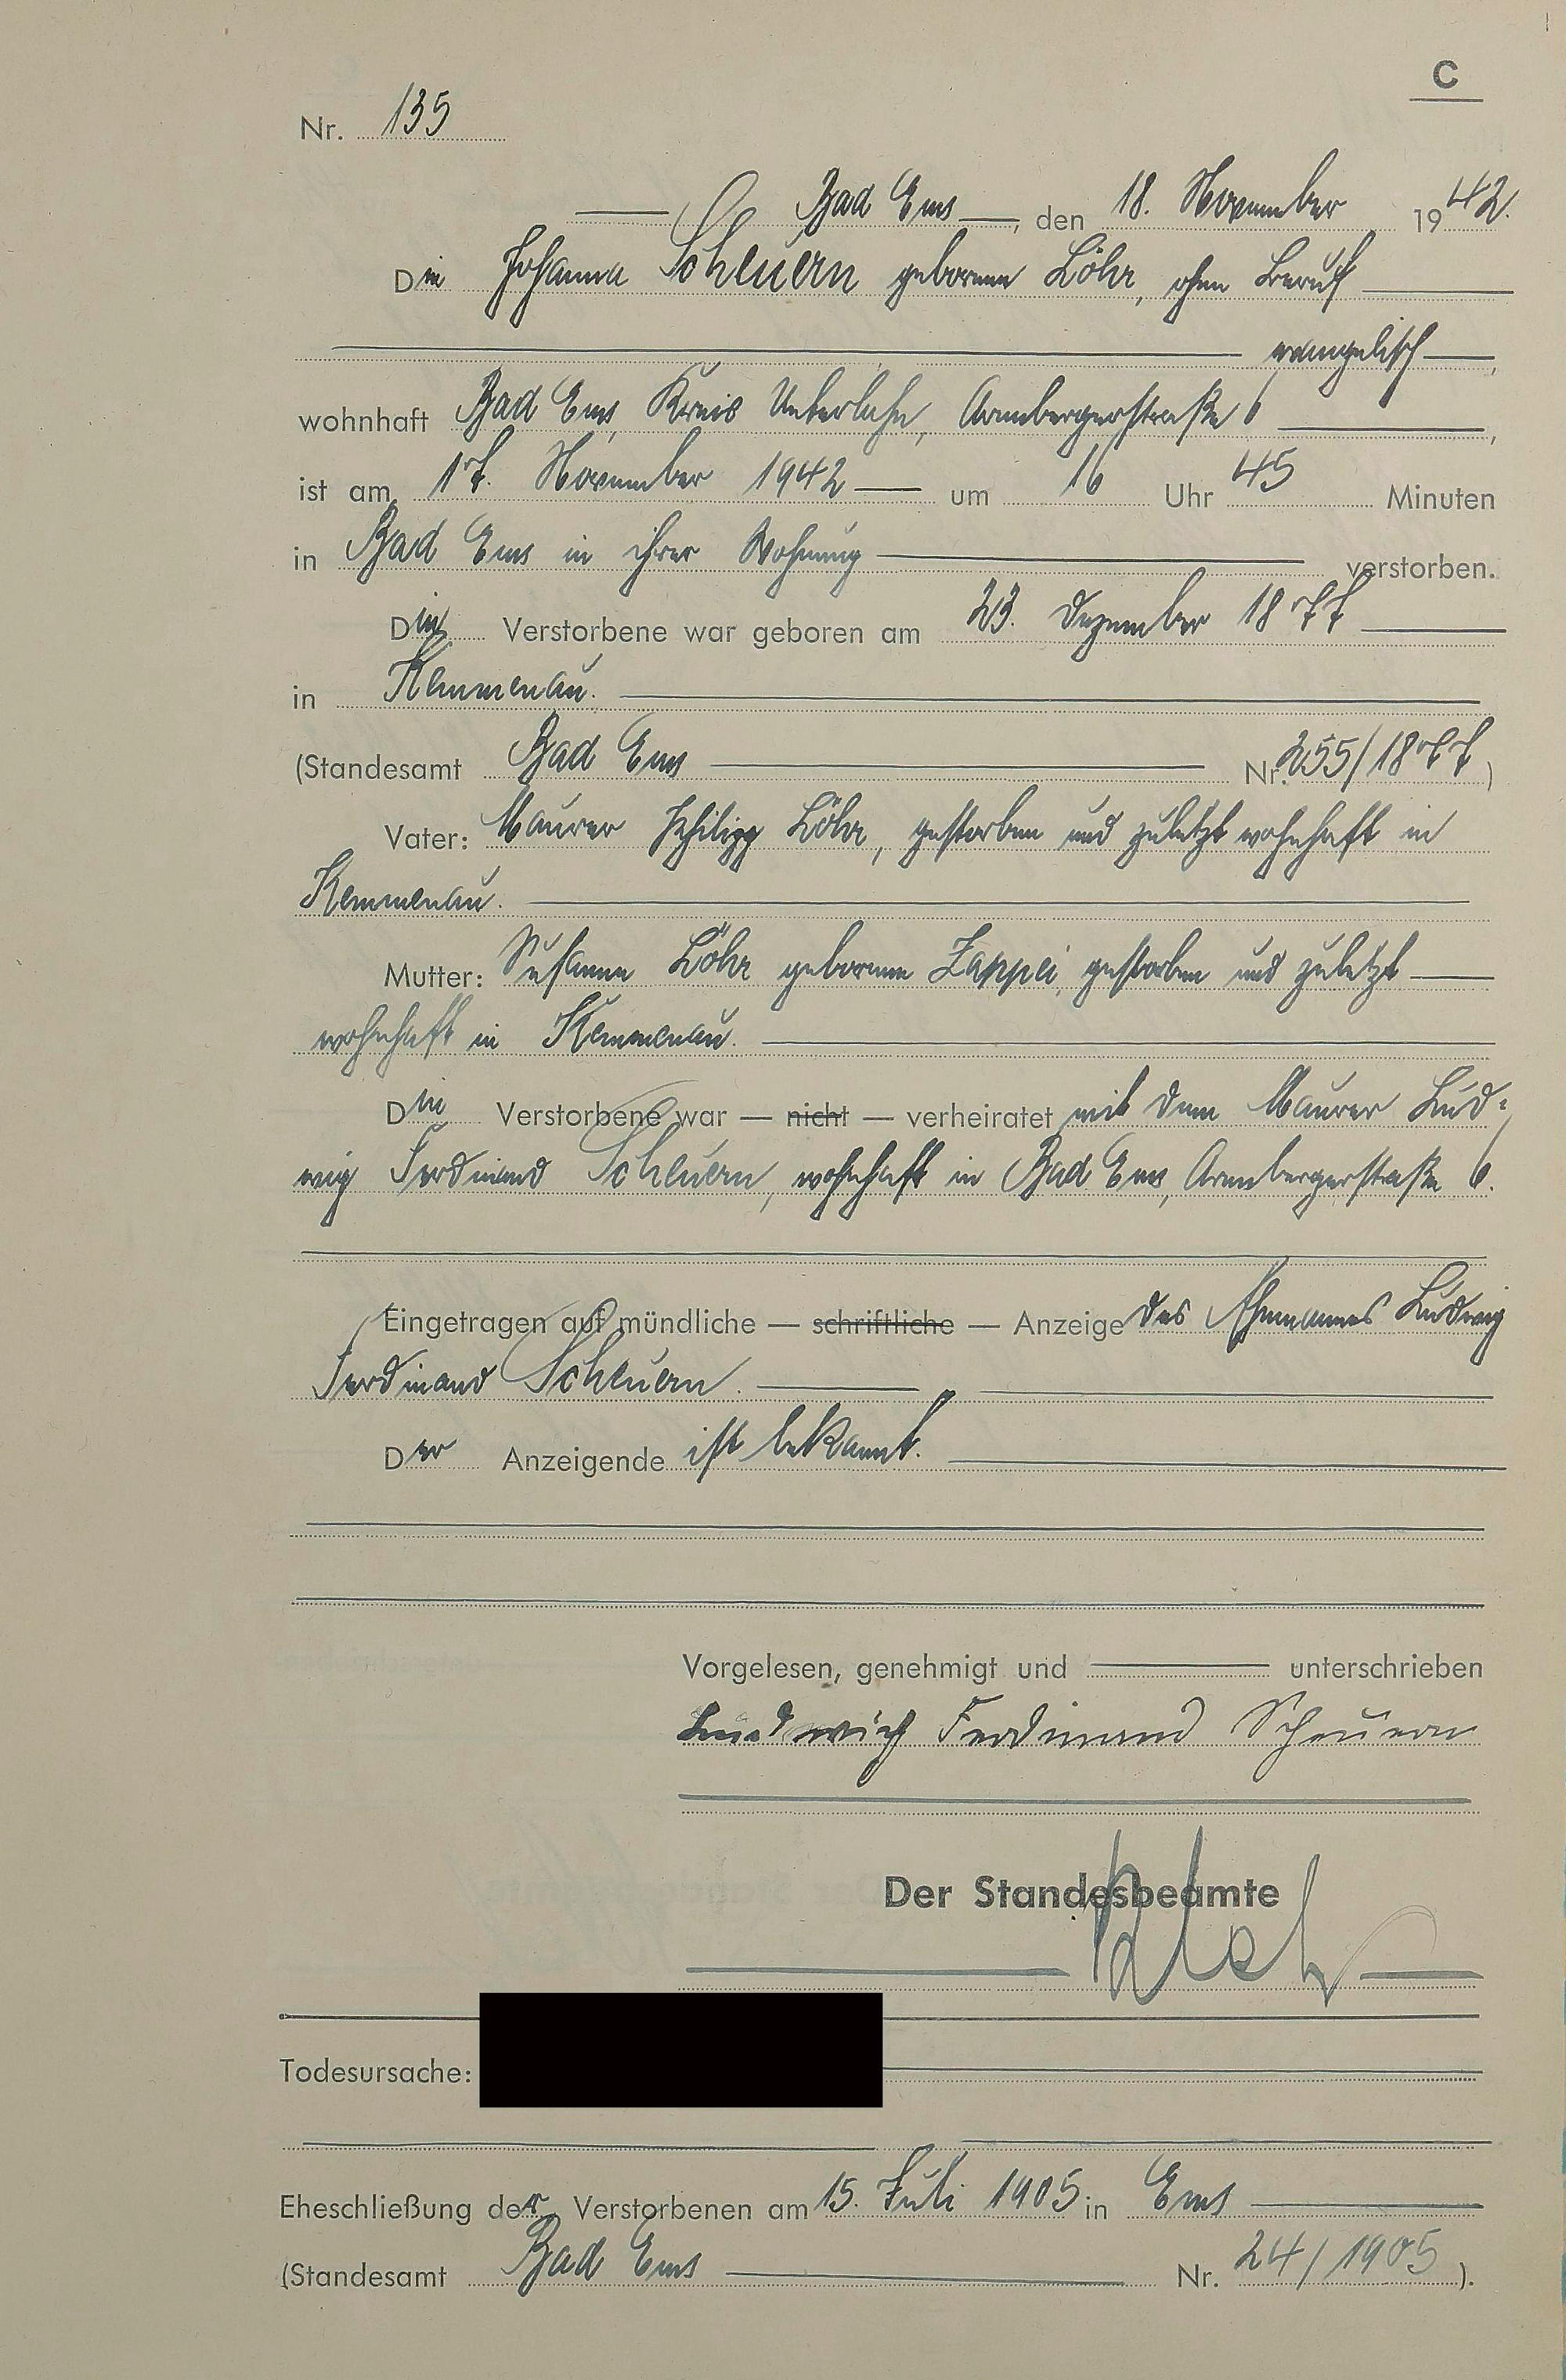 C
Nr. 135
Bad Ems, den 18. November 1942.
Die Johanna Scheuern geborene Löhr, ohne Beruf
evangelisch,
wohnhaft Bad Ems, Kreis Unterlahn, Arenbergerstraße 6,
ist am 17. November 1942 um 16 Uhr 45 Minuten
in Bad Ems in ihrer Wohnung verstorben.
Die Verstorbene war geboren am 23. Dezember 1877
in Kemmenau.
(Standesamt Bad Ems Nr. 255/1877)
Vater: Maurer Philipp Löhr, gestorben und zuletzt wohnhaft in
Kemmenau.
Mutter: Susanne Löhr geborene Zappei, gestorben und zuletzt
wohnhaft in Kemmenau.
Die Verstorbene war — nicht — verheiratet mit dem Maurer Lud=
wig Ferdinand Scheuern, wohnhaft in Bad Ems, Arenbergerstraße 6.
Eingetragen auf mündliche — schriftliche — Anzeige des Ehemannes Ludwig
Ferdinand Scheuern.
Der Anzeigende ist bekannt.
Vorgelesen, genehmigt und unterschrieben
Ludwig Ferdinand Scheuern
Der Standesbeamte
Todesursache:
Eheschließung der Verstorbenen am 15. Juli 1905 in Ems
(Standesamt Bad Ems Nr. 24/1905).